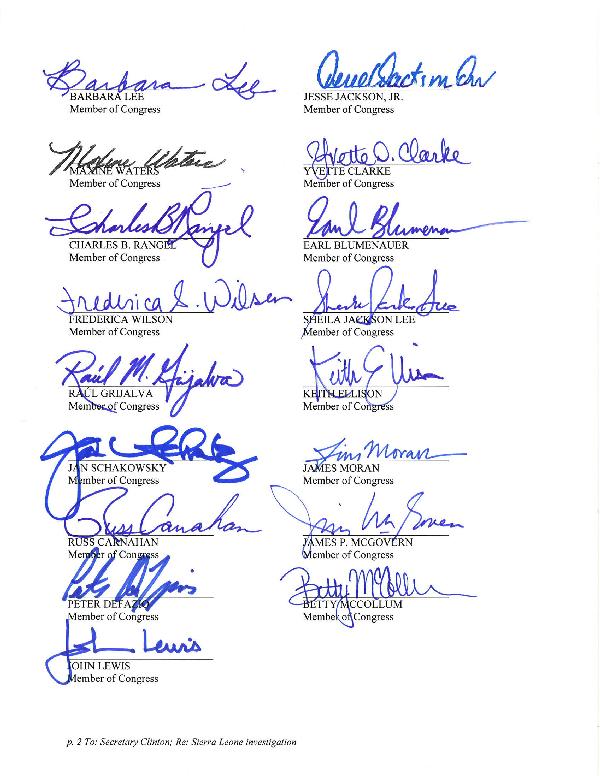 Barbara Lee
BARBARA LEE
Member of Congress
JESSE JACKSON, JR.
Member of Congress
Maxine Waters
MAXINE WATERS
Member of Congress
Yvette D. Clarke
YVETTE CLARKE
Member of Congress
Charles B Rangel
CHARLES B. RANGEL
Member of Congress
Earl Blumenau
EARL BLUMENAUER
Member of Congress
Frederica S. Wilson
FREDERICA WILSON
Member of Congress
Sheila Jackson Lee
SHEILA JACKSON LEE
Member of Congress
Raúl M. Grijalva
RAÚL GRIJALVA
Member of Congress
Keith Ellison
KEITH ELLISON
Member of Congress
JAN SCHAKOWSKY
Member of Congress
Jim Moran
JAMES MORAN
Member of Congress
Russ Carnahan
RUSS CARNAHAN
Member of Congress
Jim McGovern
JAMES P. MCGOVERN
Member of Congress
PETER DEFAZIO
Member of Congress
Betty McCollum
BETTY MCCOLLUM
Member of Congress
John Lewis
JOHN LEWIS
Member of Congress
p. 2 To: Secretary Clinton; Re: Sierra Leone investigation